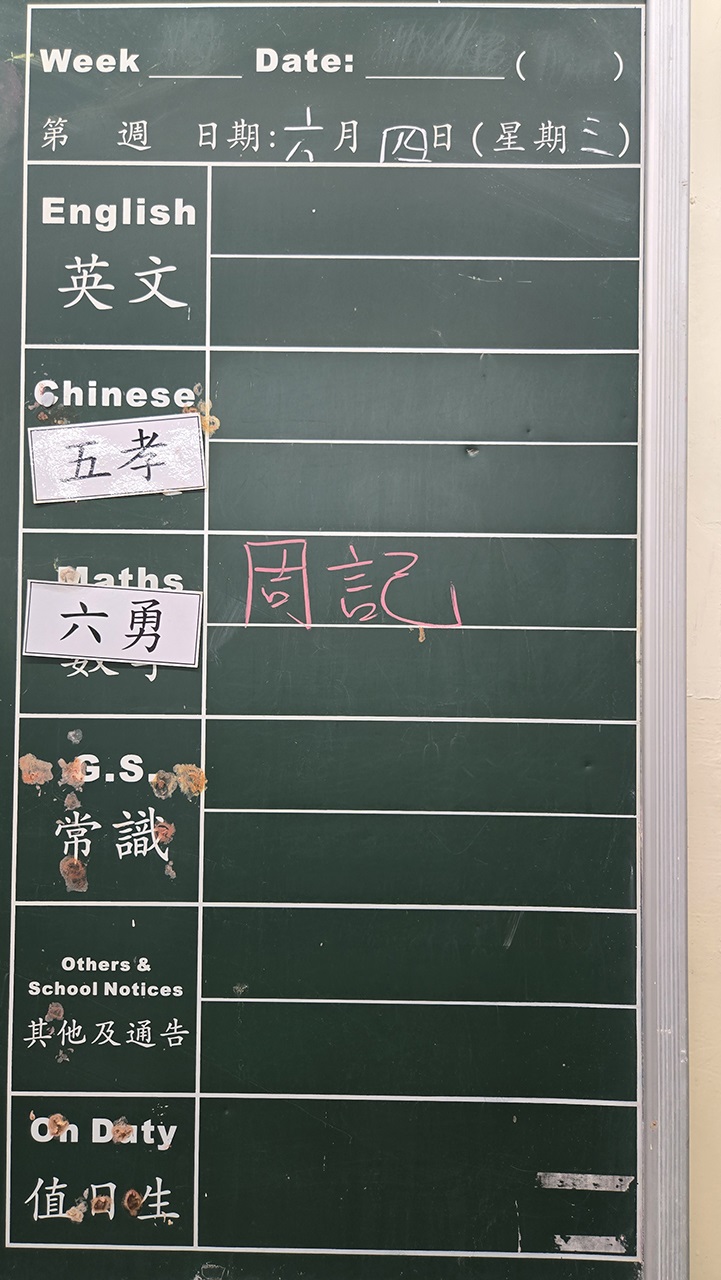 Week Date: ( )
第 週 日期:六月四日(星期三)
English
英文
Chinese
五孝
Maths
周記
六勇
數學
G.S.
常識
Others &
School Notices
其他及通告
On Duty
值日生